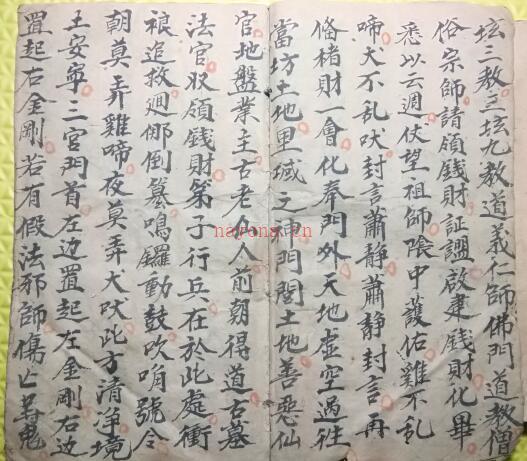 坛三教三坛九教道義仁師佛門道教僧
俗宗師請領錢財証盟啟建錢財化畢
悉以云週伏望祖師陰中護佑雞不乱
啼犬不乱吠封言蕭静蕭静封言再
俻楮財一會化奉門外天地虚空過往
當坊土地里域之神門閣土地善惡仙
官地盤業主古老久人前朝得道古墓
法官収領錢財弟子行兵在於此處衝
追救迴倒篆鳴鑼動鼓吹角號令
朝莫弄雞啼夜莫弄犬吠此方清净境
王安寧三官門首左边置起左金剛右边
置起右金剛若有假法邪師傷亡
nayona.cn